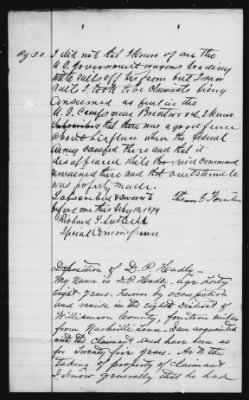 Qs 20 I did not that I know of see the
U.S. Government wagons loading
rails off his farm but I saw
rails I took to be Claimants being
consumed as fuel in the
U.S. Camps near Brentwood. I know
that there was a good fence
when the Federal
Army camped there and that it
disappeared while the said command
remained there and that
was properly made.
Subscribed & sworn to
before me this Feby 14 1874
Richard
Special Commissioner
Deposition of D. P. Hadley
My Name is D. P. Hadley, age forty
eight years. Farmer by occupation
and reside in the Eighth district of
Williamson County, fourteen miles
from Nashville Tenn. I am acquainted
with the Claimant and have been so
for twenty five years. As to the
taking of property of Claimant
I know generally that he had